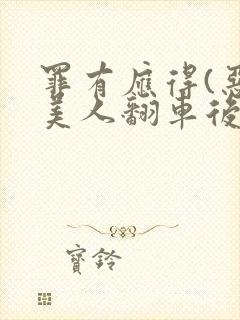 罪有應得(惡
美人翻車後
寶鈴